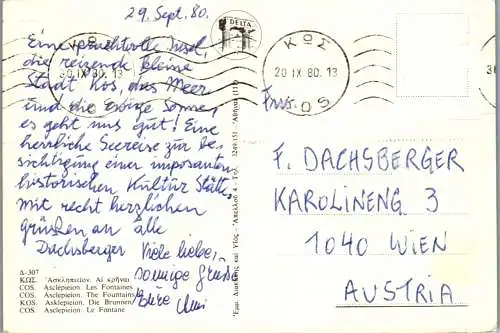 29. Sept. 80.
Eine prachtvolle Insel,
die reizende kleine
Stadt Kos, das Meer
und die ewige Sonne,
es geht uns gut! Eine
herrliche Seereise zur be-
sichtigung einer imposanten
historischen Kultur Stätte
mit recht herzlichen
grüssen an alle
Dachsberger
Viele liebe,
sonnige
DELTA
ΚΩΣ
30 IX 80. 13
COS
ΚΩΣ
20 IX 80. 13
COS
F. DACHSBERGER
KAROLINENG 3
1040 WIEN
AUSTRIA
Δ-307
ΚΩΣ. Ἀσκληπιεῖον. Αἱ κρῆναι
COS. Asclépieion. Les Fontaines
COS. Asclepieion. The Fountains
KOS. Asklepieion. Die Brunnen
COS. Asclepieion. Le Fontane